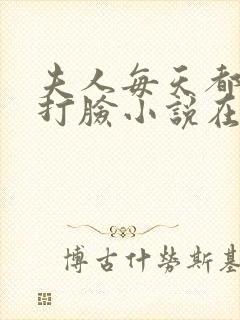 夫人每天都
打臉小說在
博古什勞斯基